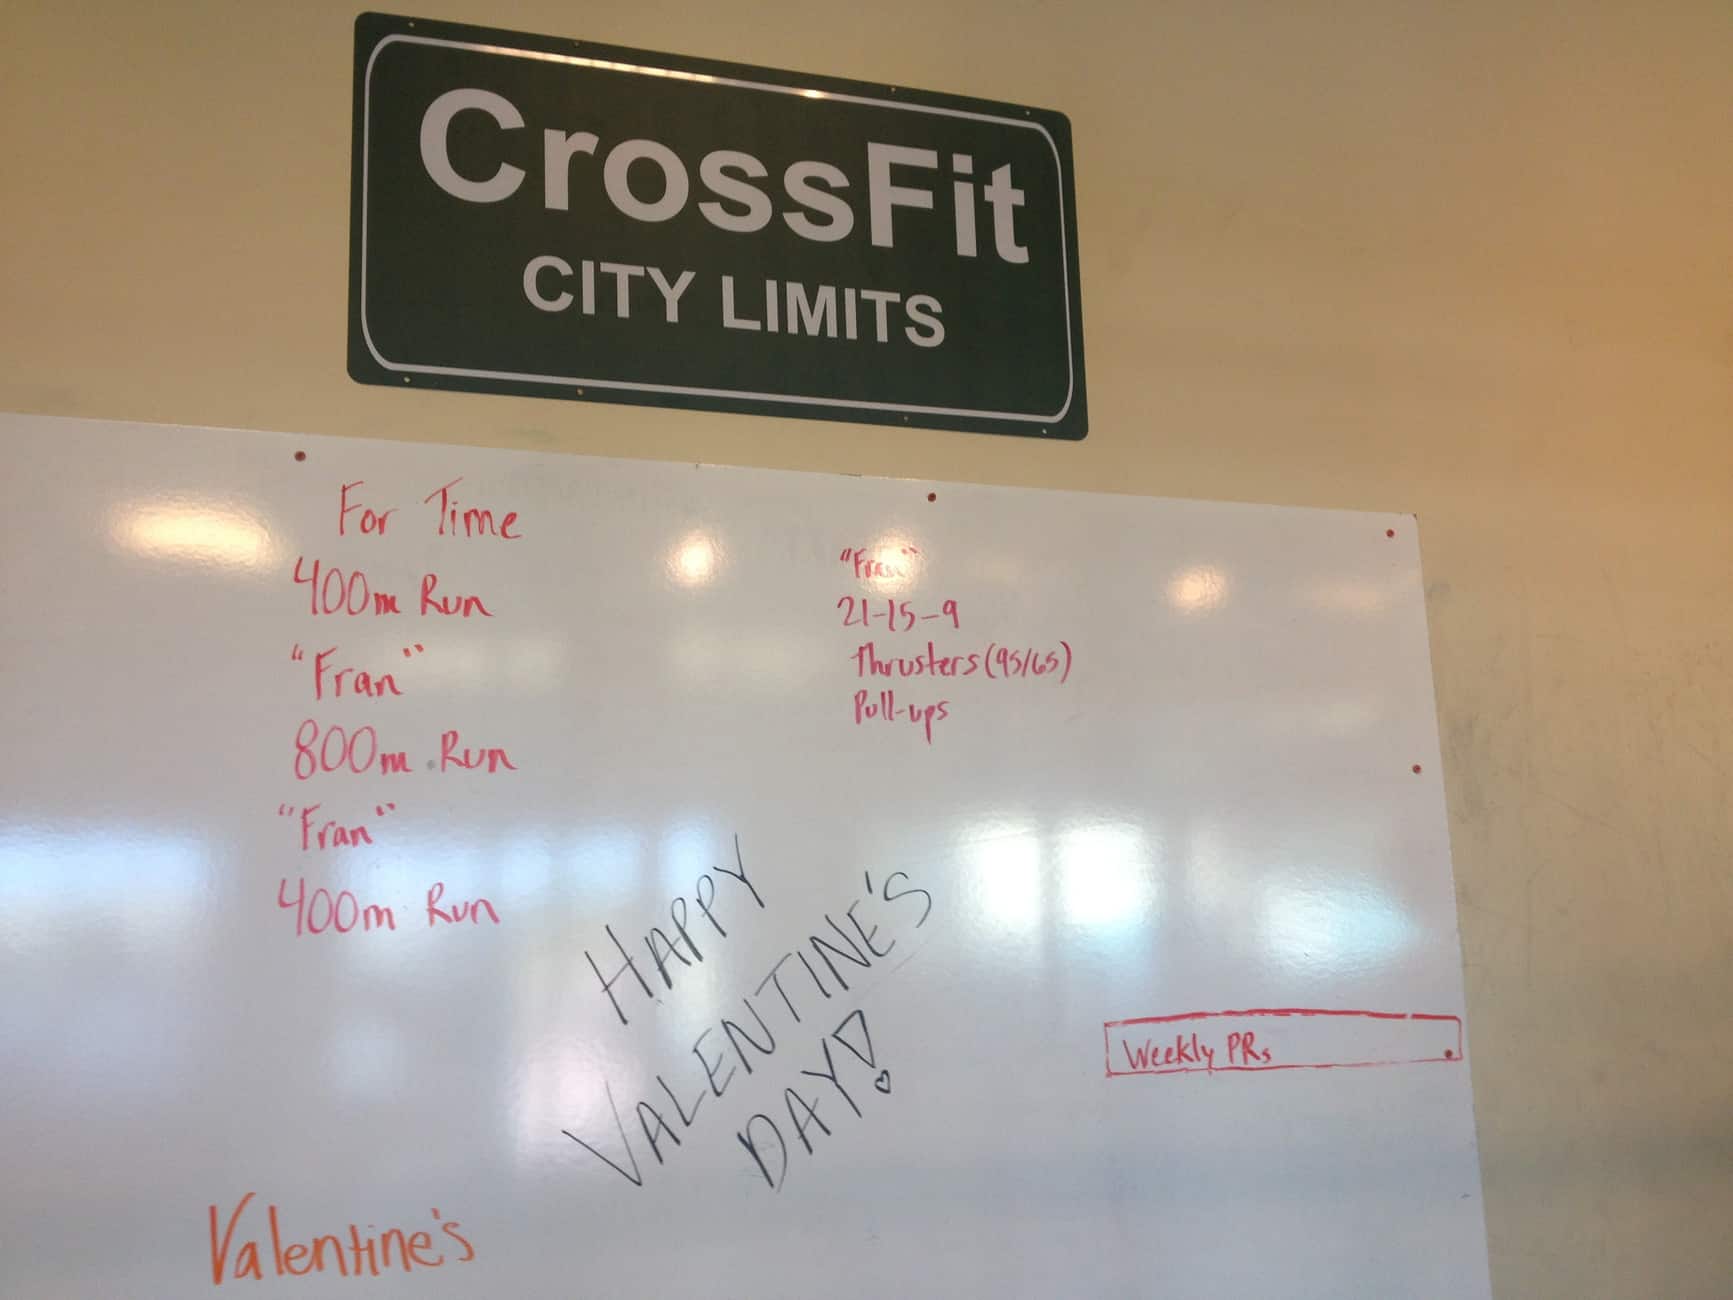 CrossFit
CITY LIMITS
For Time
400m Run
"Fran"
800m Run
"Fran"
400m Run
"Fran"
21-15-9
Thrusters (95/65)
Pull-ups
HAPPY
VALENTINE'S
DAY!
Weekly PRs
Valentine's